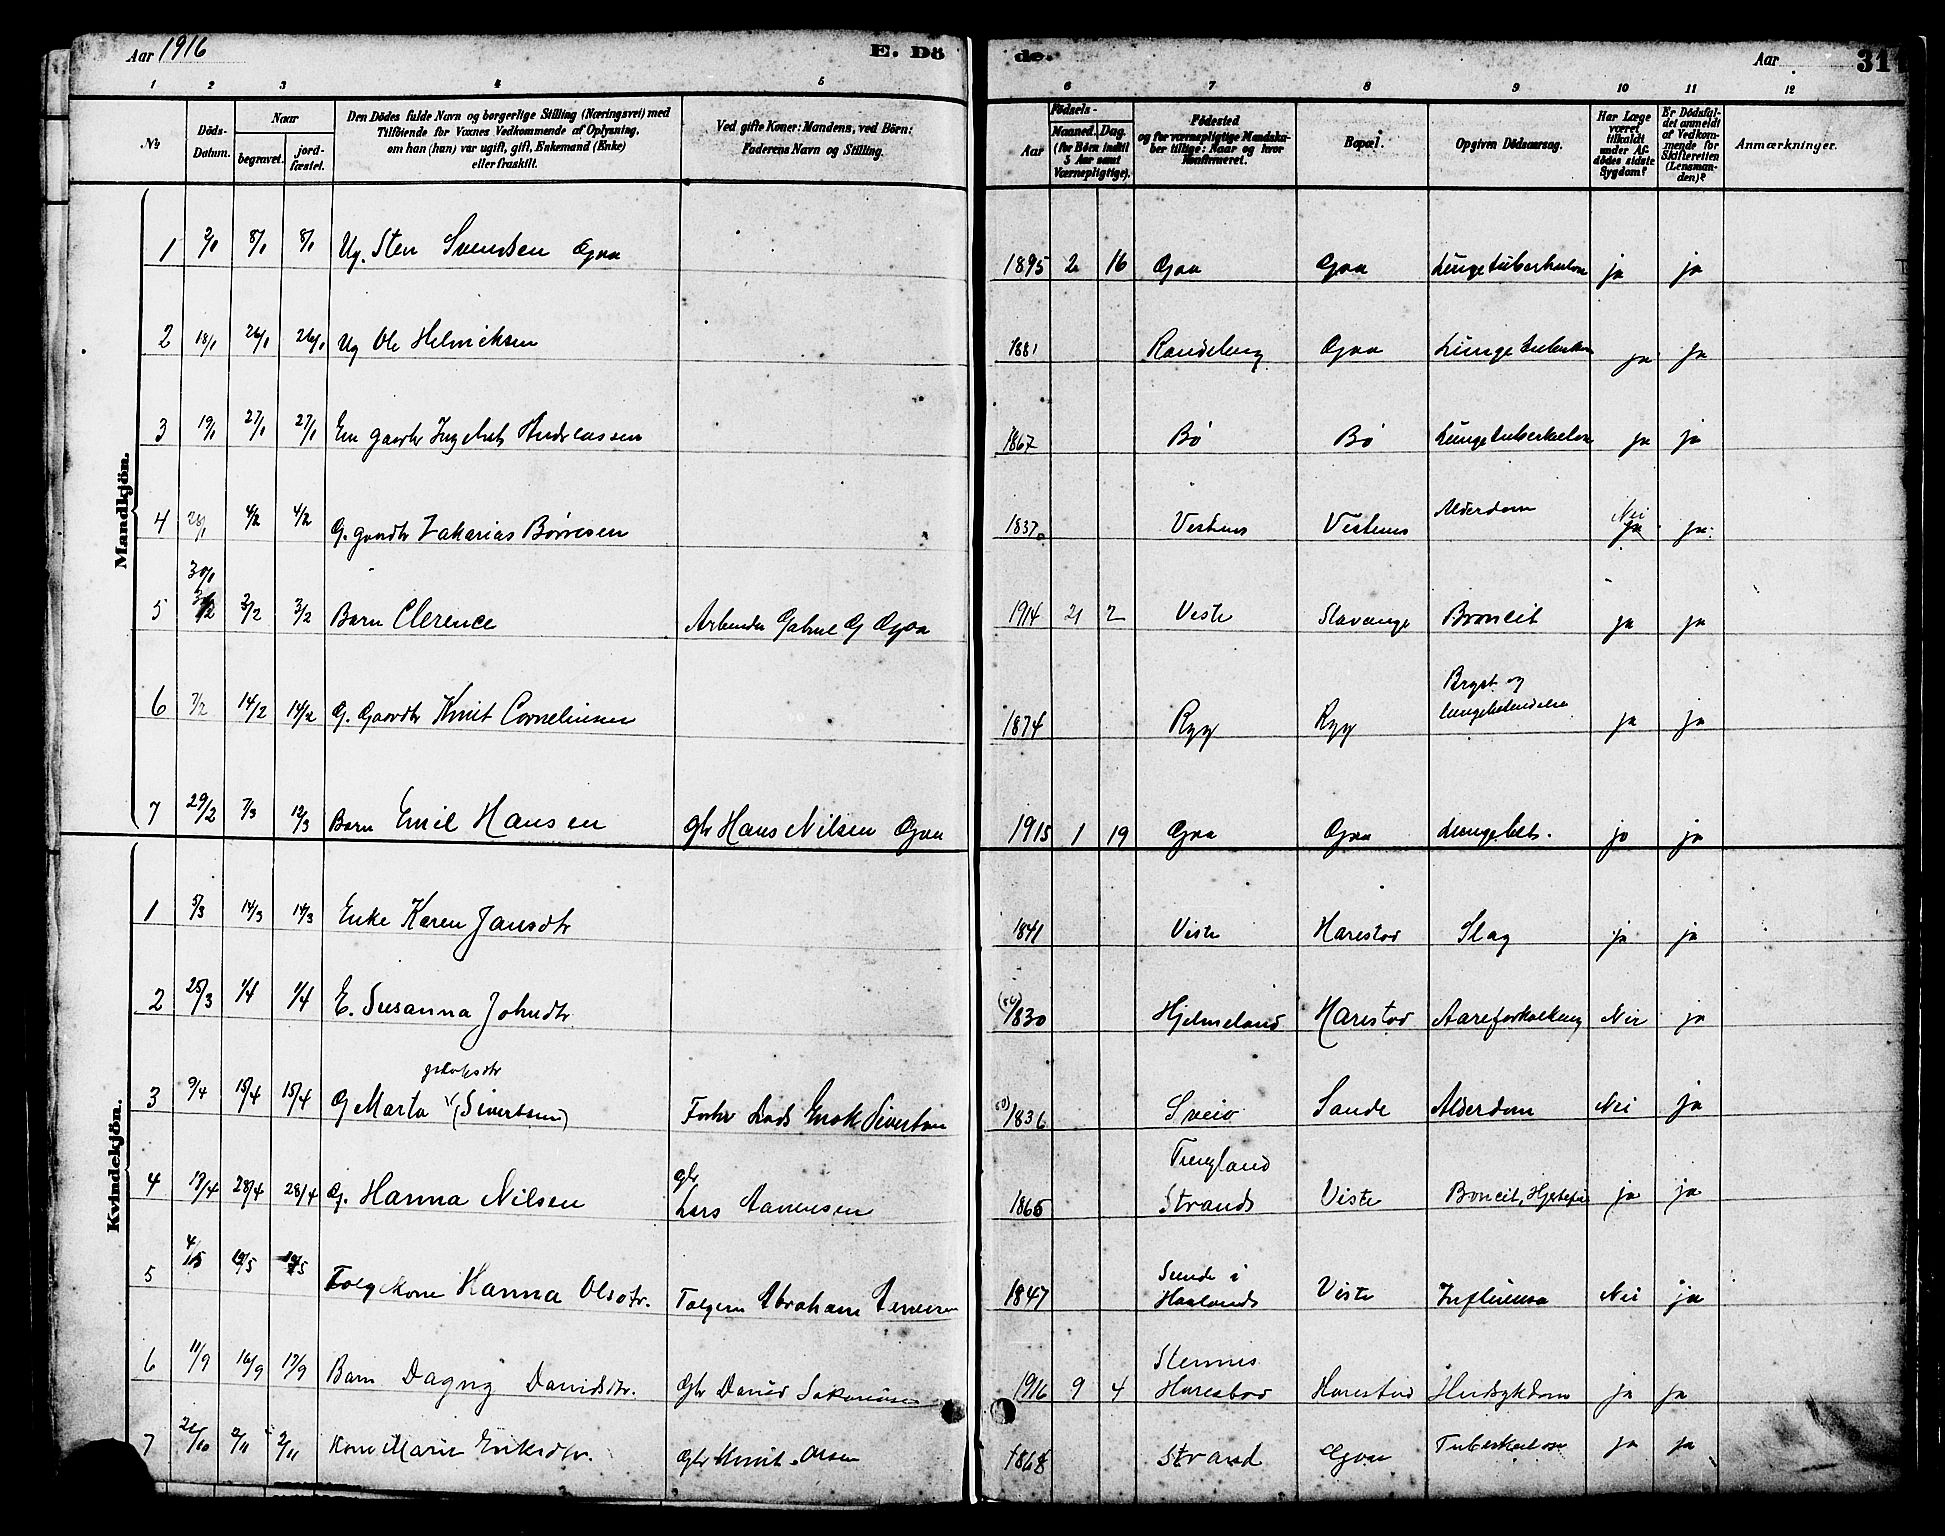 Aar 1916 E. Dö de. Aar 311
1 2 3 4 5 6 7 8 9 10 11 12
№ Döds-Datum. Naar begravet. jord-fæstet. Den Dödes fulde Navn og borgerlige Stilling (Næringsvei) med Tilföiende for Voxnes Vedkommende af Oplysning, om han (hun) var ugift, gift, Enkemand (Enke) eller fraskilt. Ved gifte Koner: Mandens, ved Börn: Faderens Navn og Stilling. Aar Födsels- Maaned. Dag. (for Börn indtil 5 Aar samt Værnepligtige). Födested og for værnepligtige Mandska-ber tillige: Naar og hvor Konfirmeret. Bopæl. Opgiven Dödsaarsag. Har Læge været tilkaldt under Af-dödes sidste Sygdom? Er Dödsfal-det anmeldt af Vedkom-mende for Skifteretten (Lensman-den)? Anmærkninger.
Mandkjön.
1 2/1 8/1 8/1 Ug. Sten Svendsen Gjaa 1895 2 16 Gjaa Gjaa Lungetuberkulose ja ja
2 18/1 26/1 26/1 Ug Ole Helmichsen 1881 Randeberg Gjaa Lungetuberku ja ja
3 19/1 27/1 27/1 Em gaardbr Ingebret Andreassen 1867 Bö Bö Lungetuberkulose ja ja
4 28/1 4/2 4/2 G. gaardbr Zakarias Börresen 1837 Vistnes Vistnes Alderdom Nei ja
5 30/1 3/2 3/2 Barn Clerence Arbeider Gabriel G Gjaa 1914 2 Viste Stavanger Broncit ja ja
6 7/2 14/2 14/2 G. Gaardbr Knut Corneliusen 1874 Ryg Ryg Bryst og lungebetendelse ja ja
7 29/2 7/3 12/3 Barn Emil Hansen gbr Hans Nilsen Gjaa 1915 1 19 Gjaa Gjaa Lungebet. ja ja
Kvindekjön.
1 5/3 14/3 14/3 Enke Karen Jansdtr 1841 Viste Harestad Slag ja ja
2 25/3 1/4 1/4 E. Susanna Johnsdtr 1830 Hjelmeland Harestad Aareforkalkning Nei ja
3 9/4 15/4 15/4 G Marta (Sivertsen) Forhv Lods Enok Sivertsen 1836 Sveio Sande Alderdom Nei ja
4 19/4 28/4 28/4 G. Hanna Nilsen gbr Lars Aanensen 1865 Strand Viste Broncit, Hjertefeil ja ja
5 4/5 12/5 Folgekone Hanna Olsdtr. Folgem Abraham 1847 Sunde i Haaland Viste Influensa Nei ja
6 11/9 16/9 17/9 Barn Dagny Davidsdtr. Gbr David Sakariasen 1916 9 4 Harestad Harestad ja ja
7 2/11 2/11 Kone Marie Eriksdtr. Gbr Knut Olsen 1868 Strand Gjaa Tuberkulose ja ja